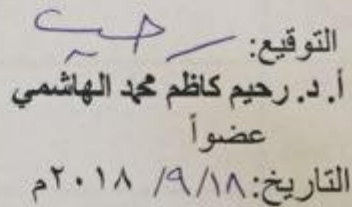 التوقيع:
أ. د. رحيم كاظم محمد الهاشمي
عضواً
التاريخ: ١٨/ ٩/ ٢٠١٨م